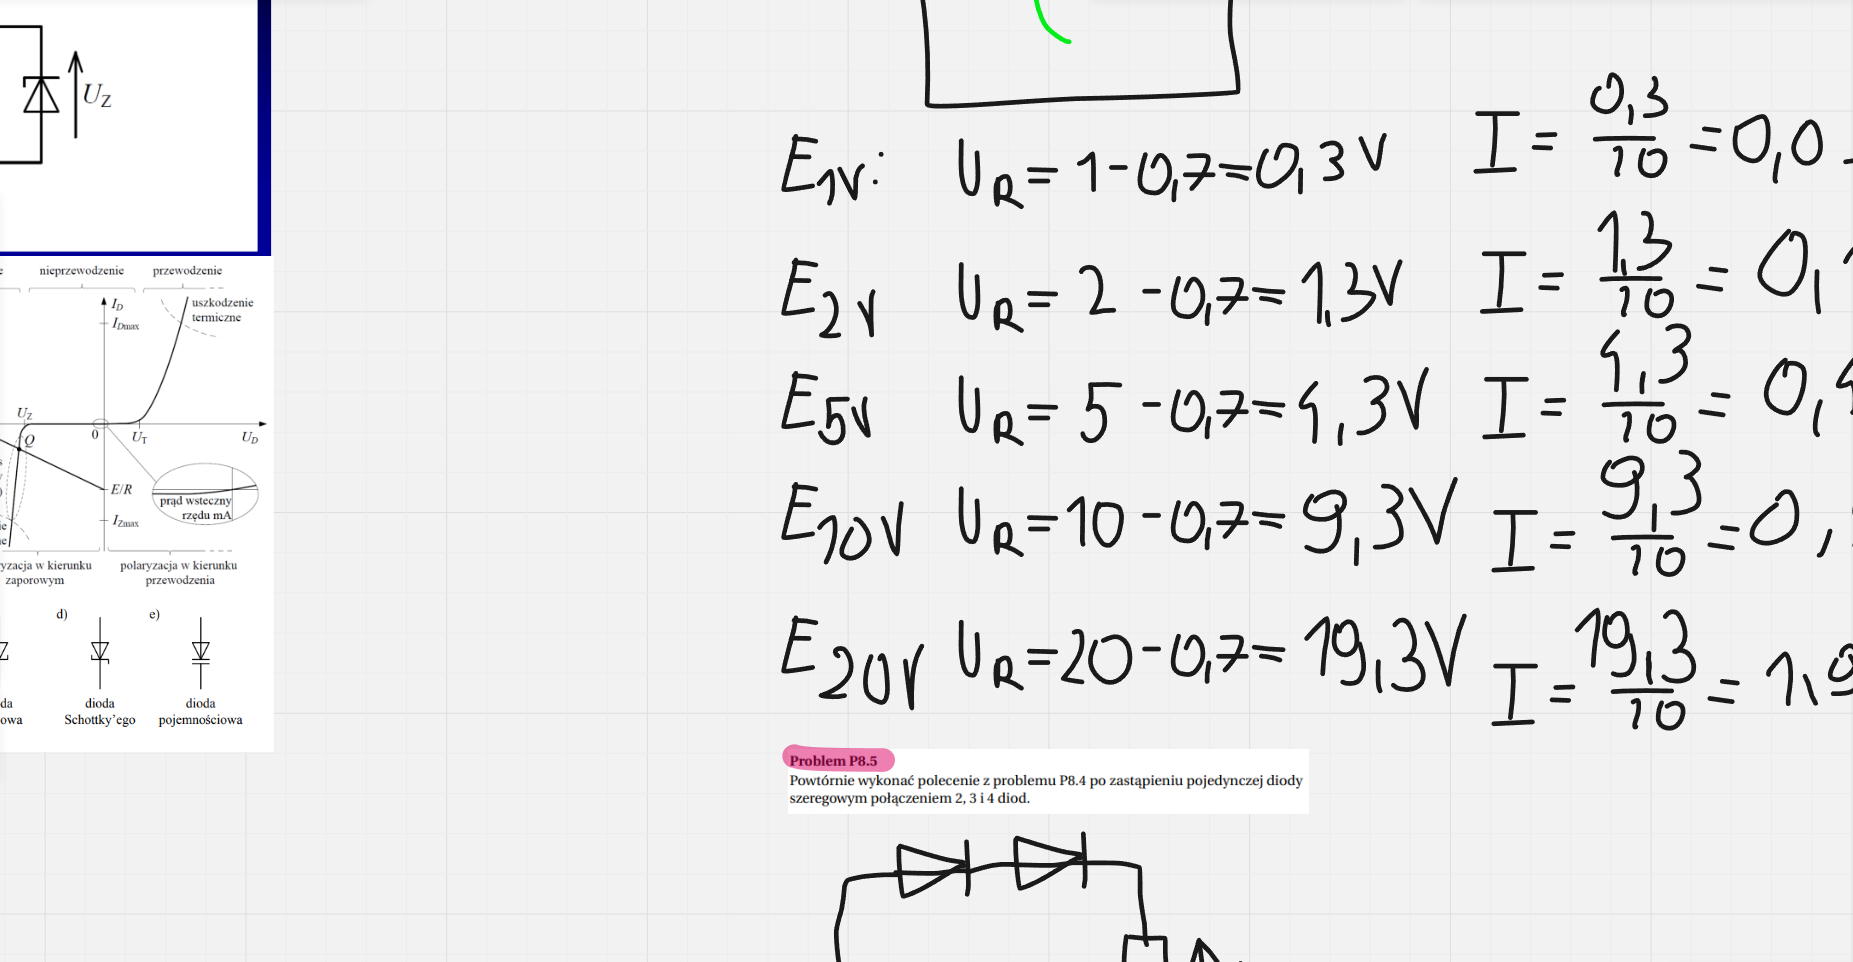 U_Z
nieprzewodzenie przewodzenie
I_D
uszkodzenie
termiczne
I_Dmax
U_Z
Q
0 U_T U_D
E/R
prąd wsteczny
rzędu mA
I_Zmax
polaryzacja w kierunku
zaporowym przewodzenia
d) e)
dioda dioda
Schottky'ego pojemnościowa
E_1V: U_R = 1 - 0,7 = 0,3 V I = 0,3/10 = 0,0
E_2V U_R = 2 - 0,7 = 1,3V I = 1,3/10 = 0,1
E_5V U_R = 5 - 0,7 = 4,3V I = 4,3/10 = 0,4
E_10V U_R = 10 - 0,7 = 9,3V I = 9,3/10 = 0,
E_20V U_R = 20 - 0,7 = 19,3V I = 19,3/10 = 1,9
Problem P8.5
Powtórnie wykonać polecenie z problemu P8.4 po zastąpieniu pojedynczej diody
szeregowym połączeniem 2, 3 i 4 diod.